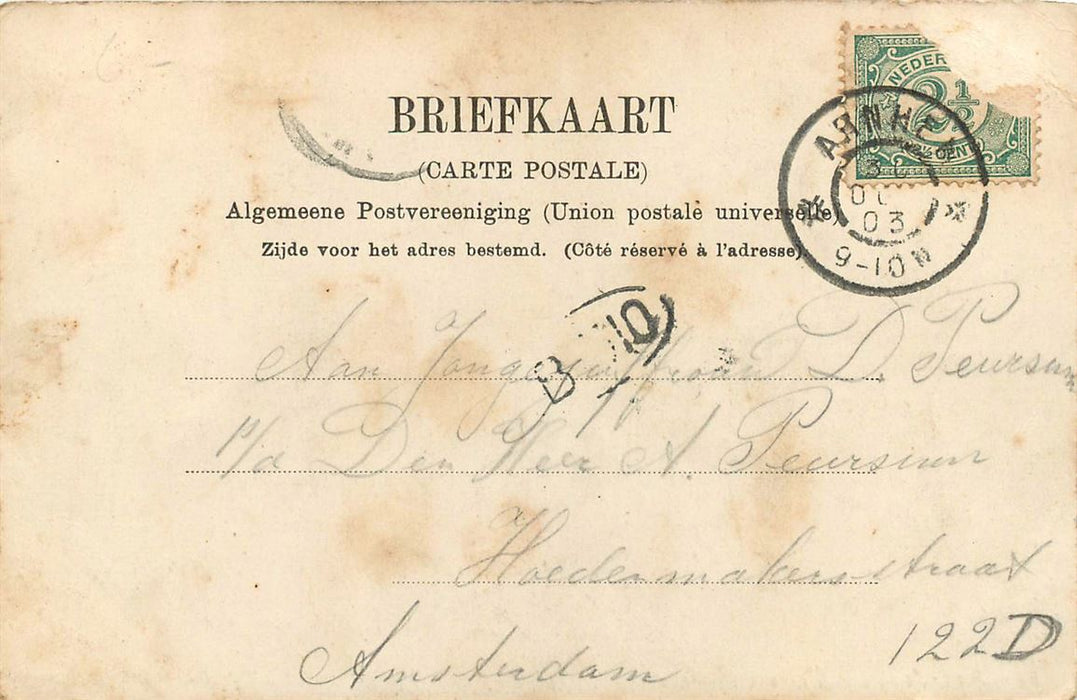 BRIEFKAART
(CARTE POSTALE)
Algemeene Postvereeniging (Union postale universelle)
Zijde voor het adres bestemd. (Côté réservé à l'adresse)
NEDER
2½
2½ CENT
ARNHEM
03
9-10 N
Aan Jongejuffrouw D. Peursum
p/a Den Heer A. Peursum
Hoedenmakersstraat
122 D
Amsterdam